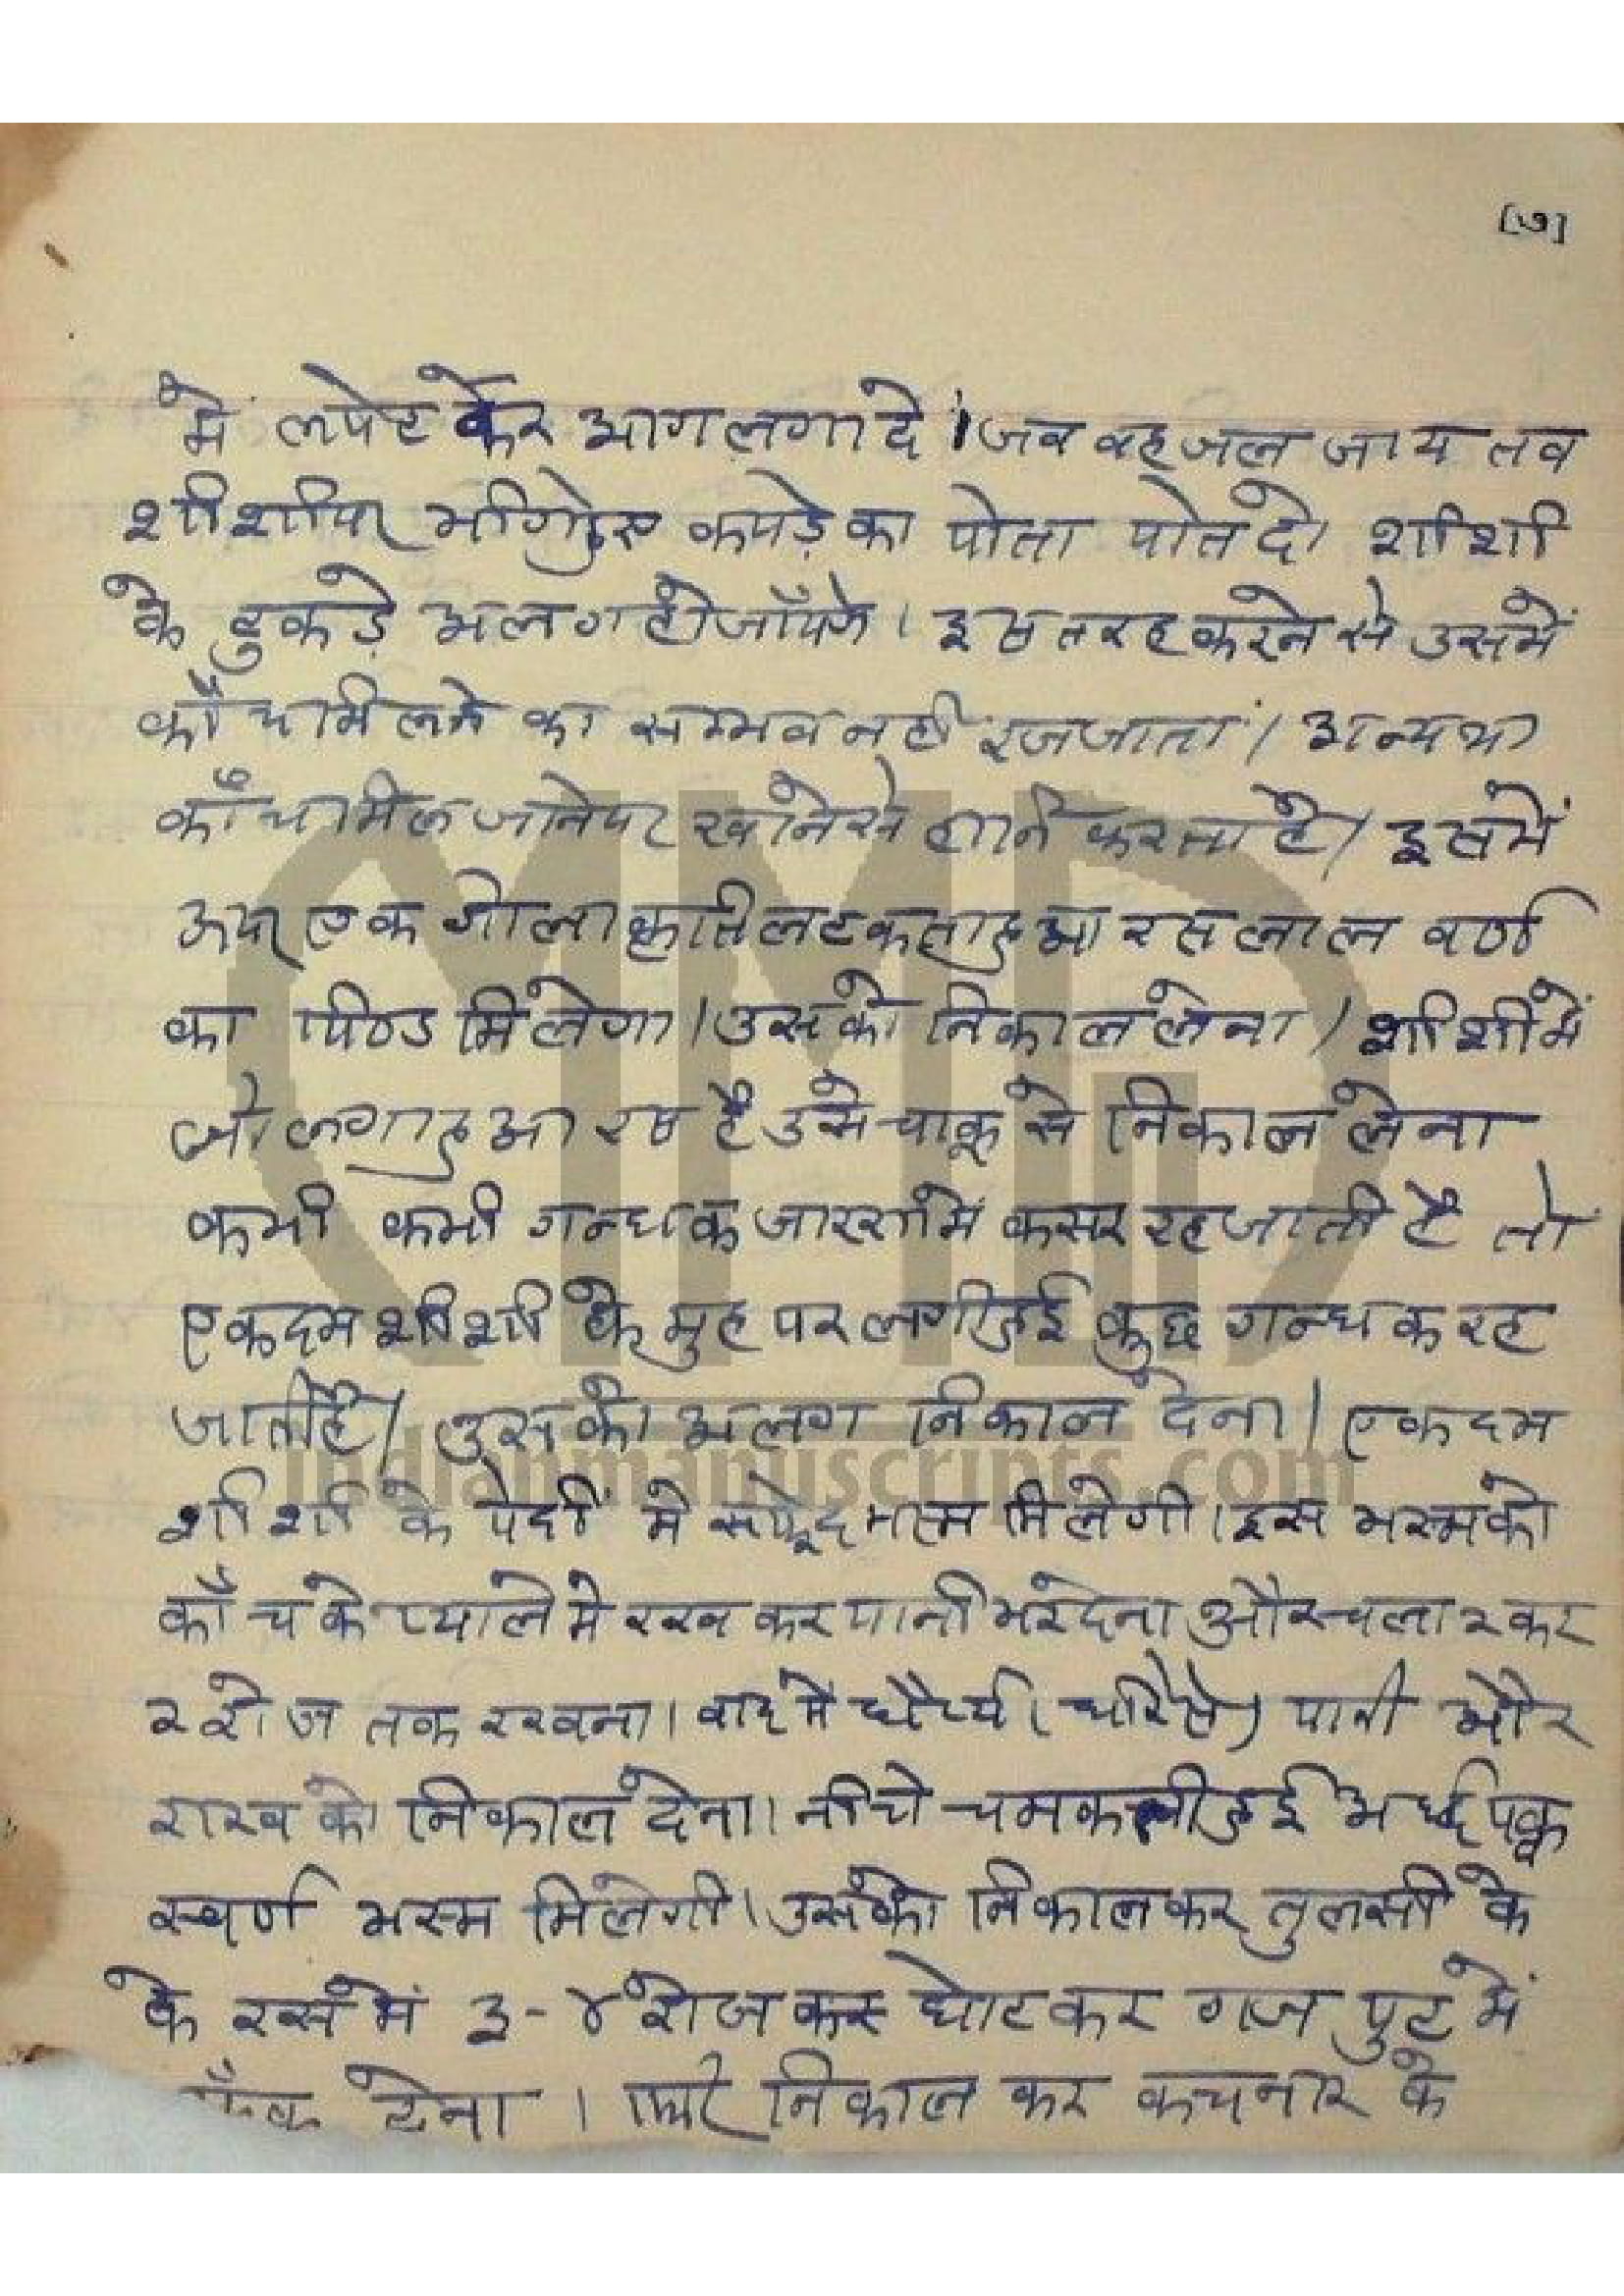 [७]
मे लपेट कर आग लगा दे । जव वह जल जाय तव
शीशीपर भीगेहुए कपड़े का पोता पोत दे। शीशी
के टुकड़े अलग हो जाँयगे । इस तरह करने से उसमें
काँच मिलने का सम्भव नही रह जाता । अन्यथा
काँच मिल जानेपर खानेसे हानि करता है । इसमें
ऊपर एक गोलाकृति लटकता हुआ रस लाल वर्ण
का पिण्ड मिलेगा । उसको निकाल लेना । शीशीमें
जो लगा हुआ रस है उसे चाकू से निकाल लेना
कभी कभी गन्धक जारण मे कसर रह जाती है तो
एकदम शीशी के मुह पर लगीहुई कुछ गन्धक रह
जातीहै । उसको अलग निकाल देना । एकदम
शीशी के पेदीं मे सफेद भस्म मिलेगी । इस भस्मको
काँच के प्याले मे रख कर पानी भर देना और चला २ कर
२ रोज तक रखना । वाद मे धैर्य्य (धीरेसे) पानी और
राख को निकाल देना । नीचे चमकती हुई अर्ध्द पक्व
स्वर्ण भस्म मिलेगी । उसको निकालकर तुलसी के
के रस में ३-४ रोज कर घोटकर गज पुट में
फूँक देना । फिर निकाल कर कचनार के
indianmanuscripts.com